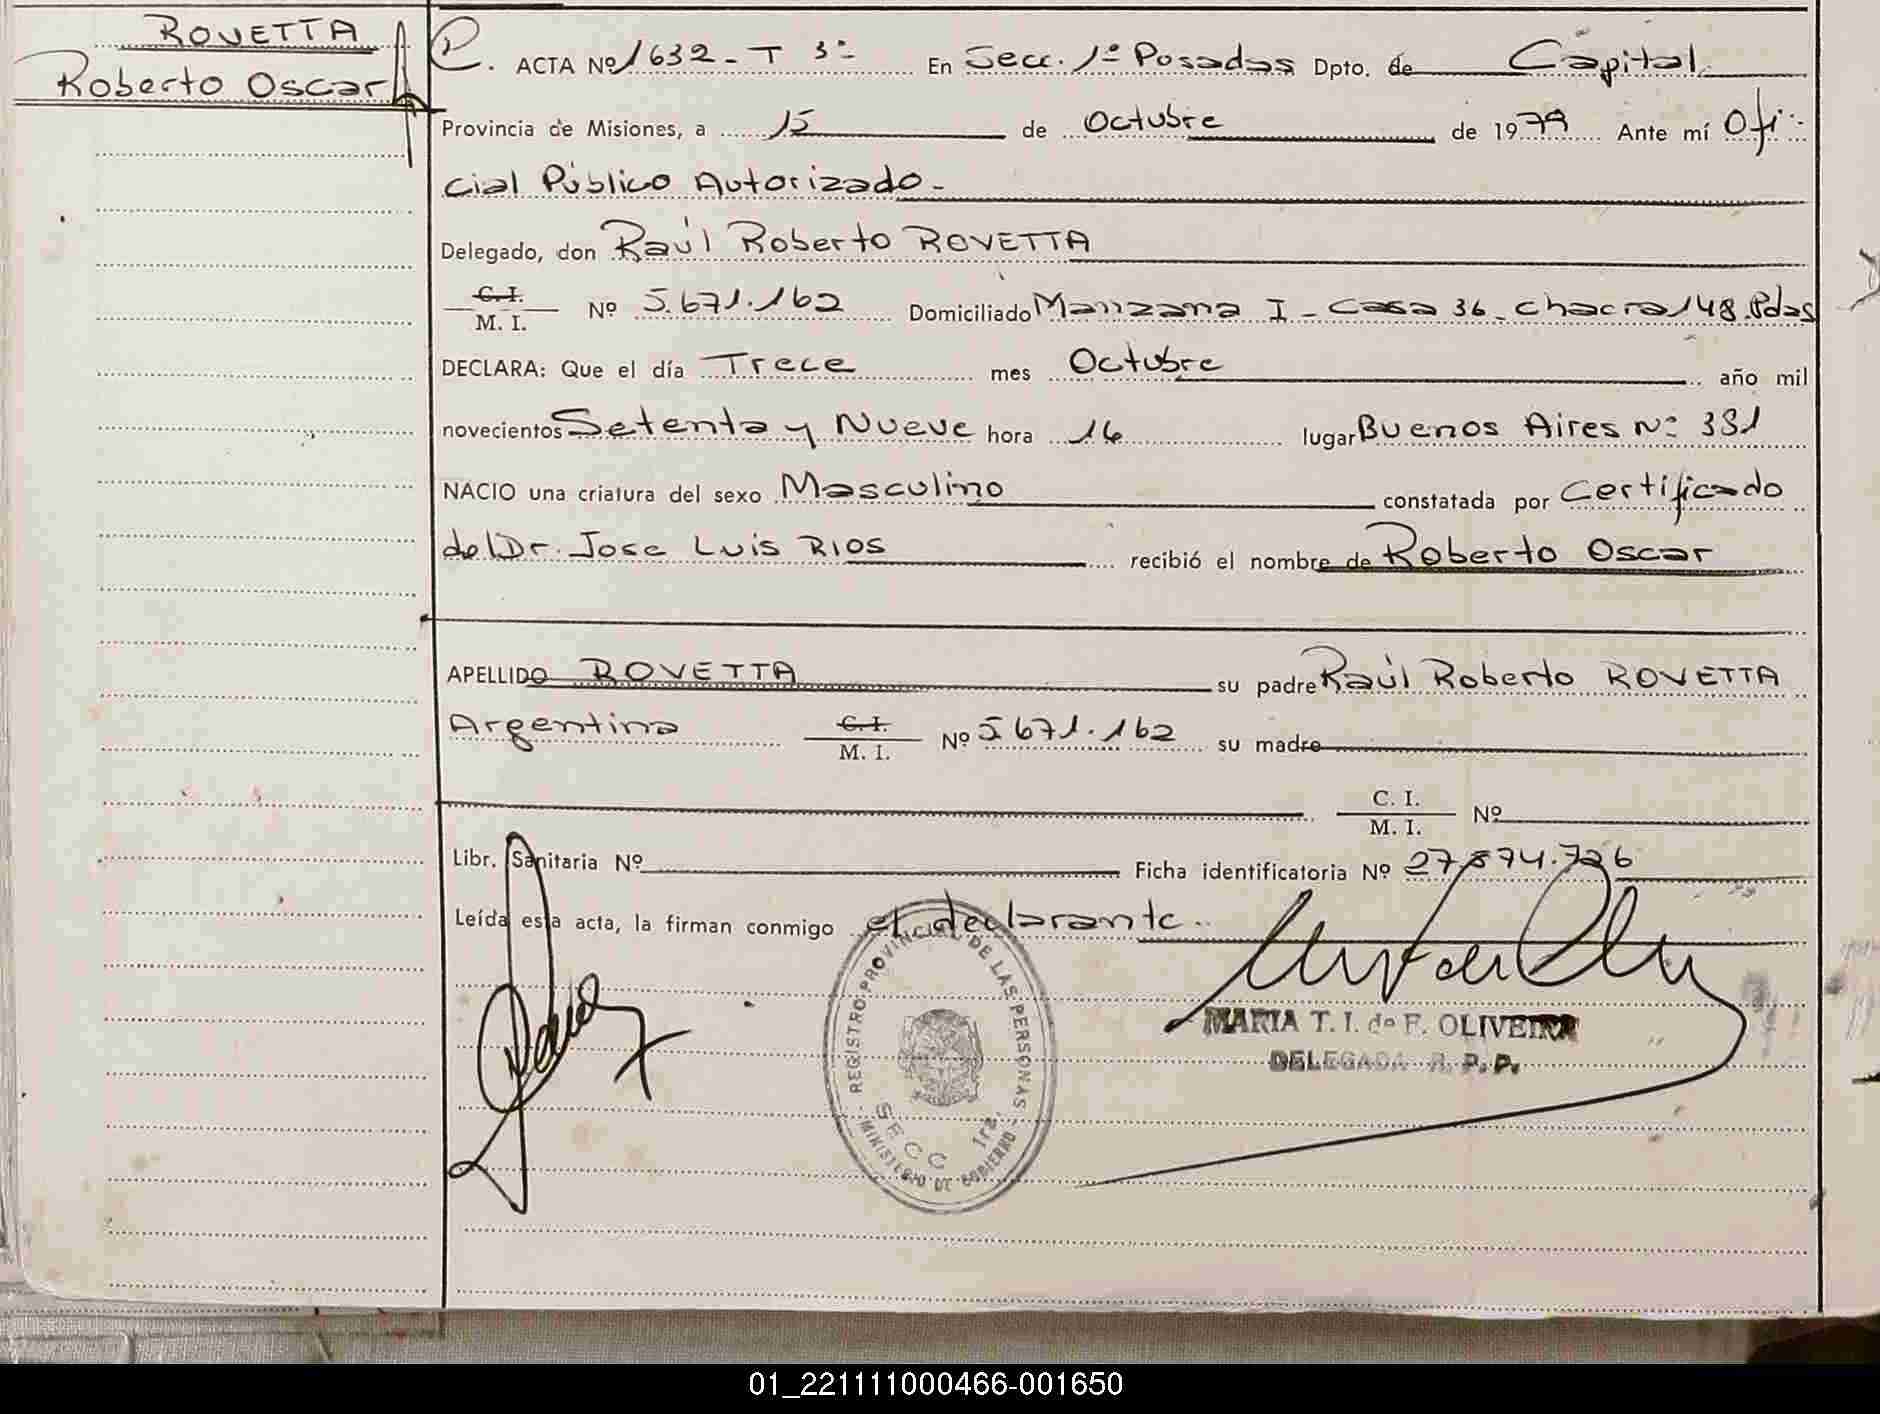 ROVETTA
Roberto Oscar
ACTA Nº 1632 - T 3º En Secc. 1º Posadas Dpto. de Capital
Provincia de Misiones, a 15 de Octubre de 1979 Ante mí Ofi-
cial Público Autorizado -
Delegado, don Raúl Roberto ROVETTA
C. I.
M. I. Nº 5.671.162 Domiciliado Manzana I - Casa 36 - Chacra 148. Pdas
DECLARA: Que el día Trece mes Octubre año mil
novecientos Setenta y Nueve hora 16 lugar Buenos Aires Nº 331
NACIO una criatura del sexo Masculino constatada por Certificado
del Dr. Jose Luis RIOS recibió el nombre de Roberto Oscar
APELLIDO ROVETTA su padre Raúl Roberto ROVETTA
Argentino C. I.
M. I. Nº 5.671.162 su madre
C. I.
M. I. Nº
Libr. Sanitaria Nº Ficha identificatoria Nº 27.574.726
Leída esta acta, la firman conmigo el declarante.
REGISTRO PROVINCIAL DE LAS PERSONAS
SECC 1ra.
MINISTERIO DE GOBIERNO
MARIA T. I. de F. OLIVEIRA
DELEGADA R. P. P.
01_221111000466-001650